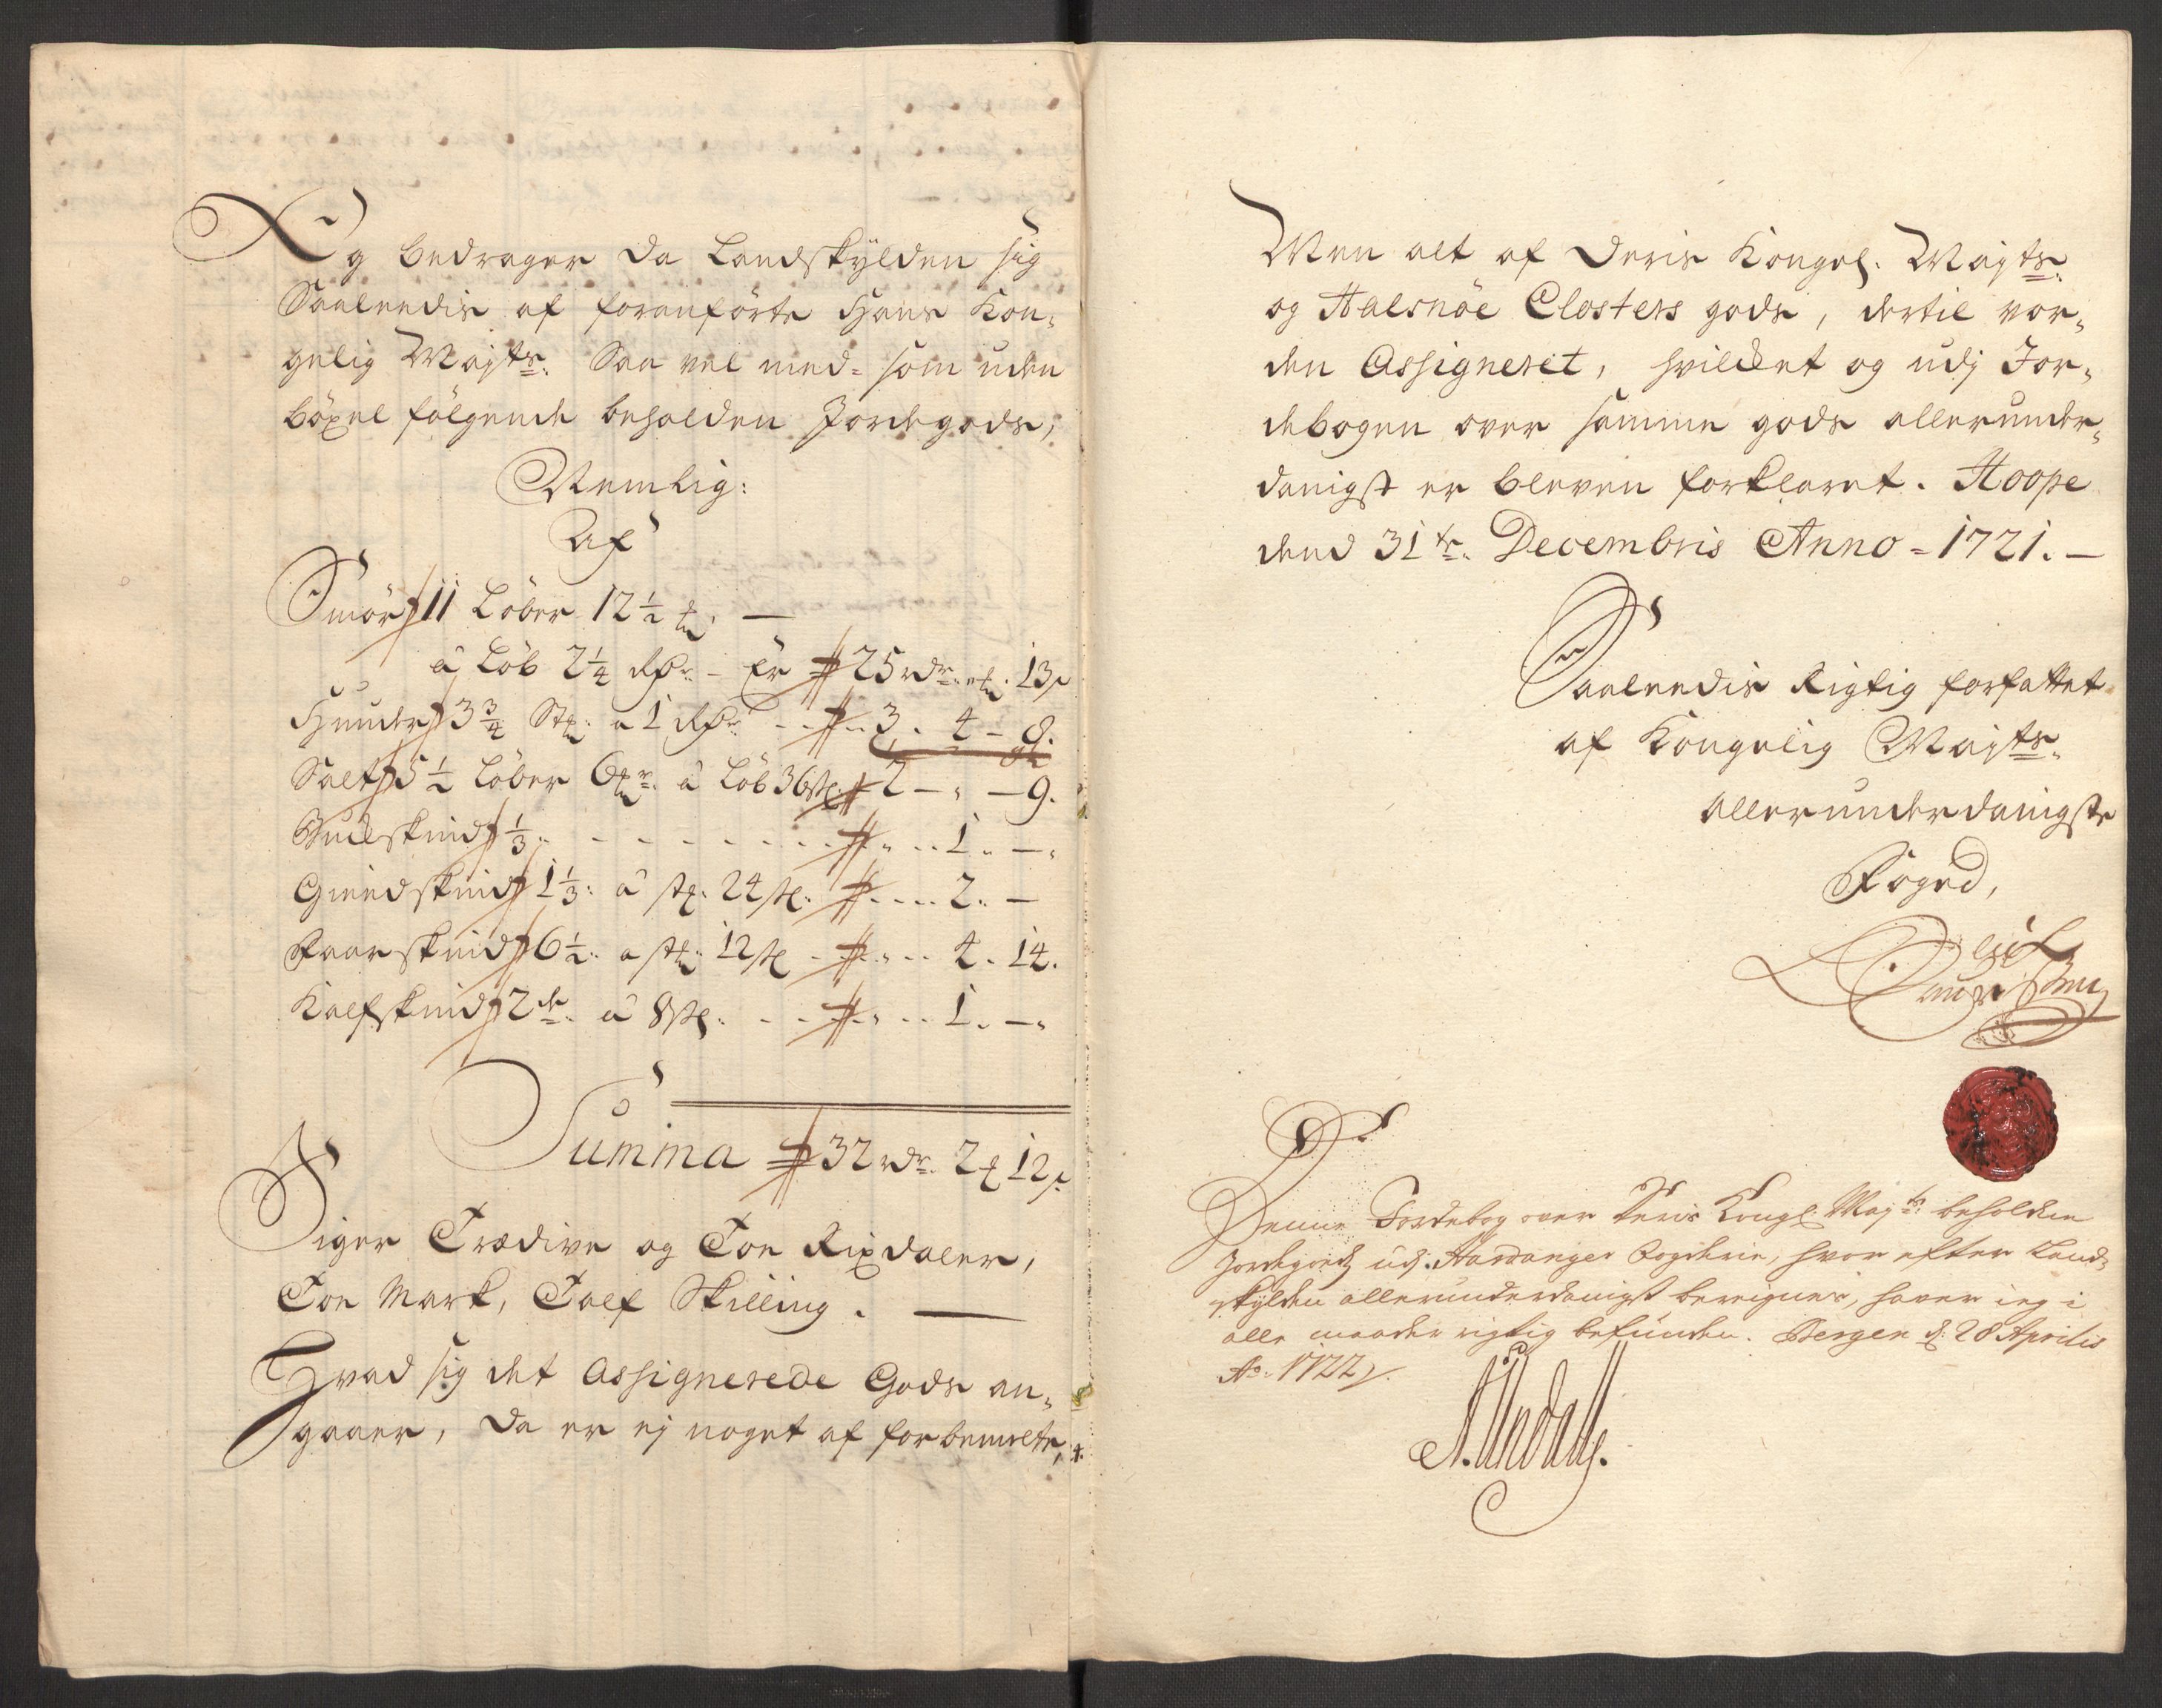 Og bedrager da Landskylden sig
Saaleedis af foranförte Hans Kon-
gelig Majts: Saa vel med- som uden
böxel fölgende beholden Jordegods,
Nemlig:
Af
Smör 11 Löber 12 1/2
à Löb 2 1/4 Rdr - Er 25 rdr 13 s
Huuder 3 3/4 Stk: a 1 Rdr 3. 4 - 8.
Salt 5 1/2 Löber à Löb 36 sk: 2 - „ - 9.
Bukskind 1/3 „ 1 „ - „
Gjeedskind 1 1/3: à stk: 24 sk: 2 „ -
Faarskind 6 1/2: a stk: 12 sk „ 4. 14.
Kalfskind 2de: à 8 sk: „ 1. - „
Summa 32 rdr 2 12 s
Siger Trædive og Toe Rixdaler,
Toe Mark, Tolf Skilling. —
Hvad sig det Assignerede Gods an-
gaaer, da er ej noget af forbemelte,
Men alt af Deris Kongel: Majts:
og Halsnöe Closters gods, dertil vor-
den Assigneret, hvilcket og udj Jor-
debogen over samme gods allerunder-
danigst er bleven forklaret. Hoope
dend 31te: Decembris Anno - 1721. —
Saaleedis Rigtig forfattet
af Kongelig Majts:
allerunderdanigste
Foged,
Denne Jordebog over Deris Kongl: Majts: beholden
Jordegods udj Hardanger Fogderie, hvor efter Land-
skylden allerunderdanigst beregnes, haver jeg i
alle maader rigtig befunden. Bergen d: 28 Aprilis
Ao: 1722.